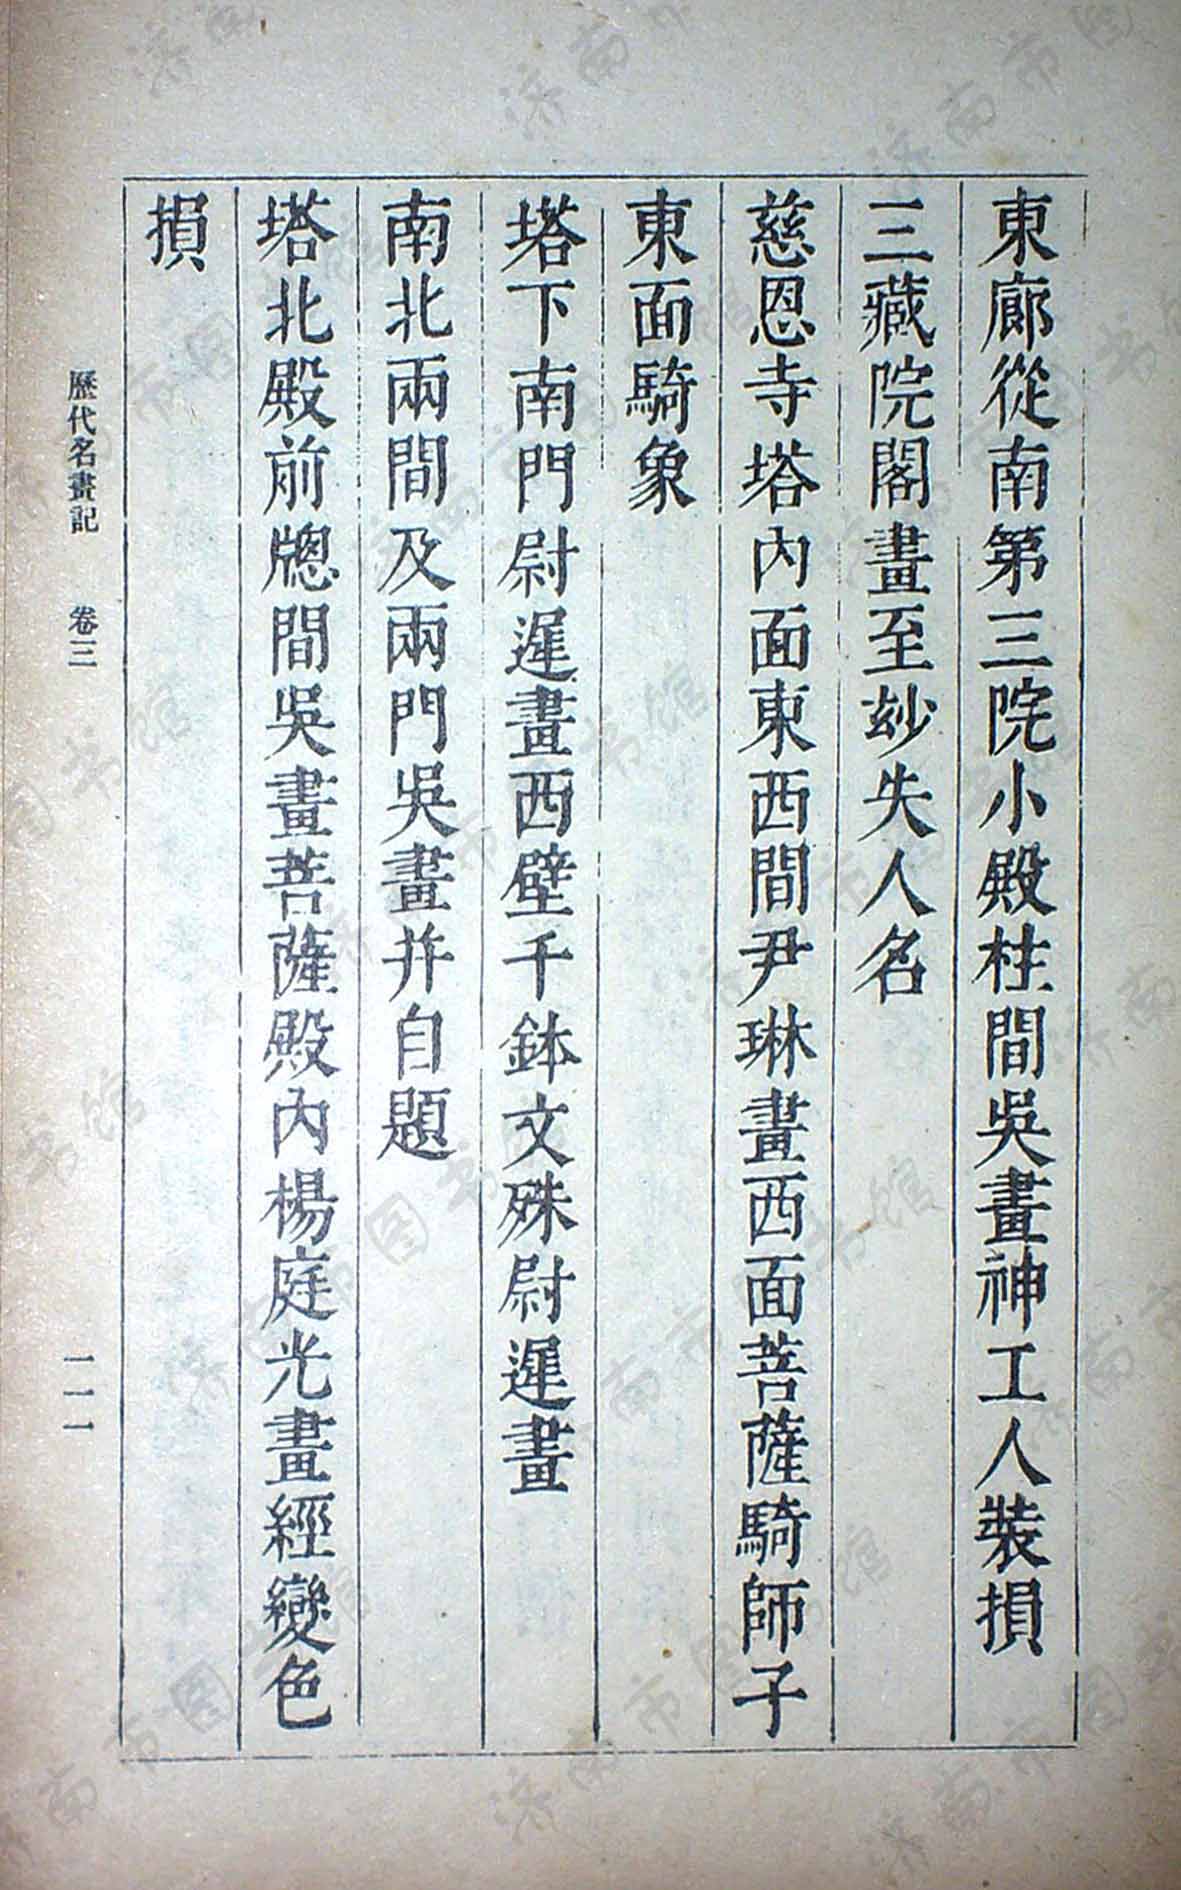 東廊從南第三院小殿柱間吳畫神工人裝損
三藏院閣畫至玅失人名
慈恩寺塔內面東西間尹琳畫西面菩薩騎師子
東面騎象
塔下南門尉遲畫西壁千鉢文殊尉遲畫
南北兩間及兩門吳畫并自題
塔北殿前牕間吳畫菩薩殿內楊庭光畫經變色
損
歷代名畫記 卷三
一一一
济南市图书馆